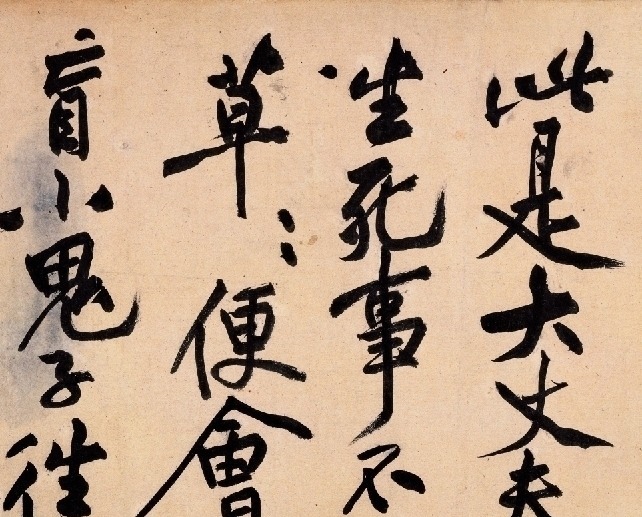 此是大丈夫
生死事不
草〻便會
盲小鬼子往